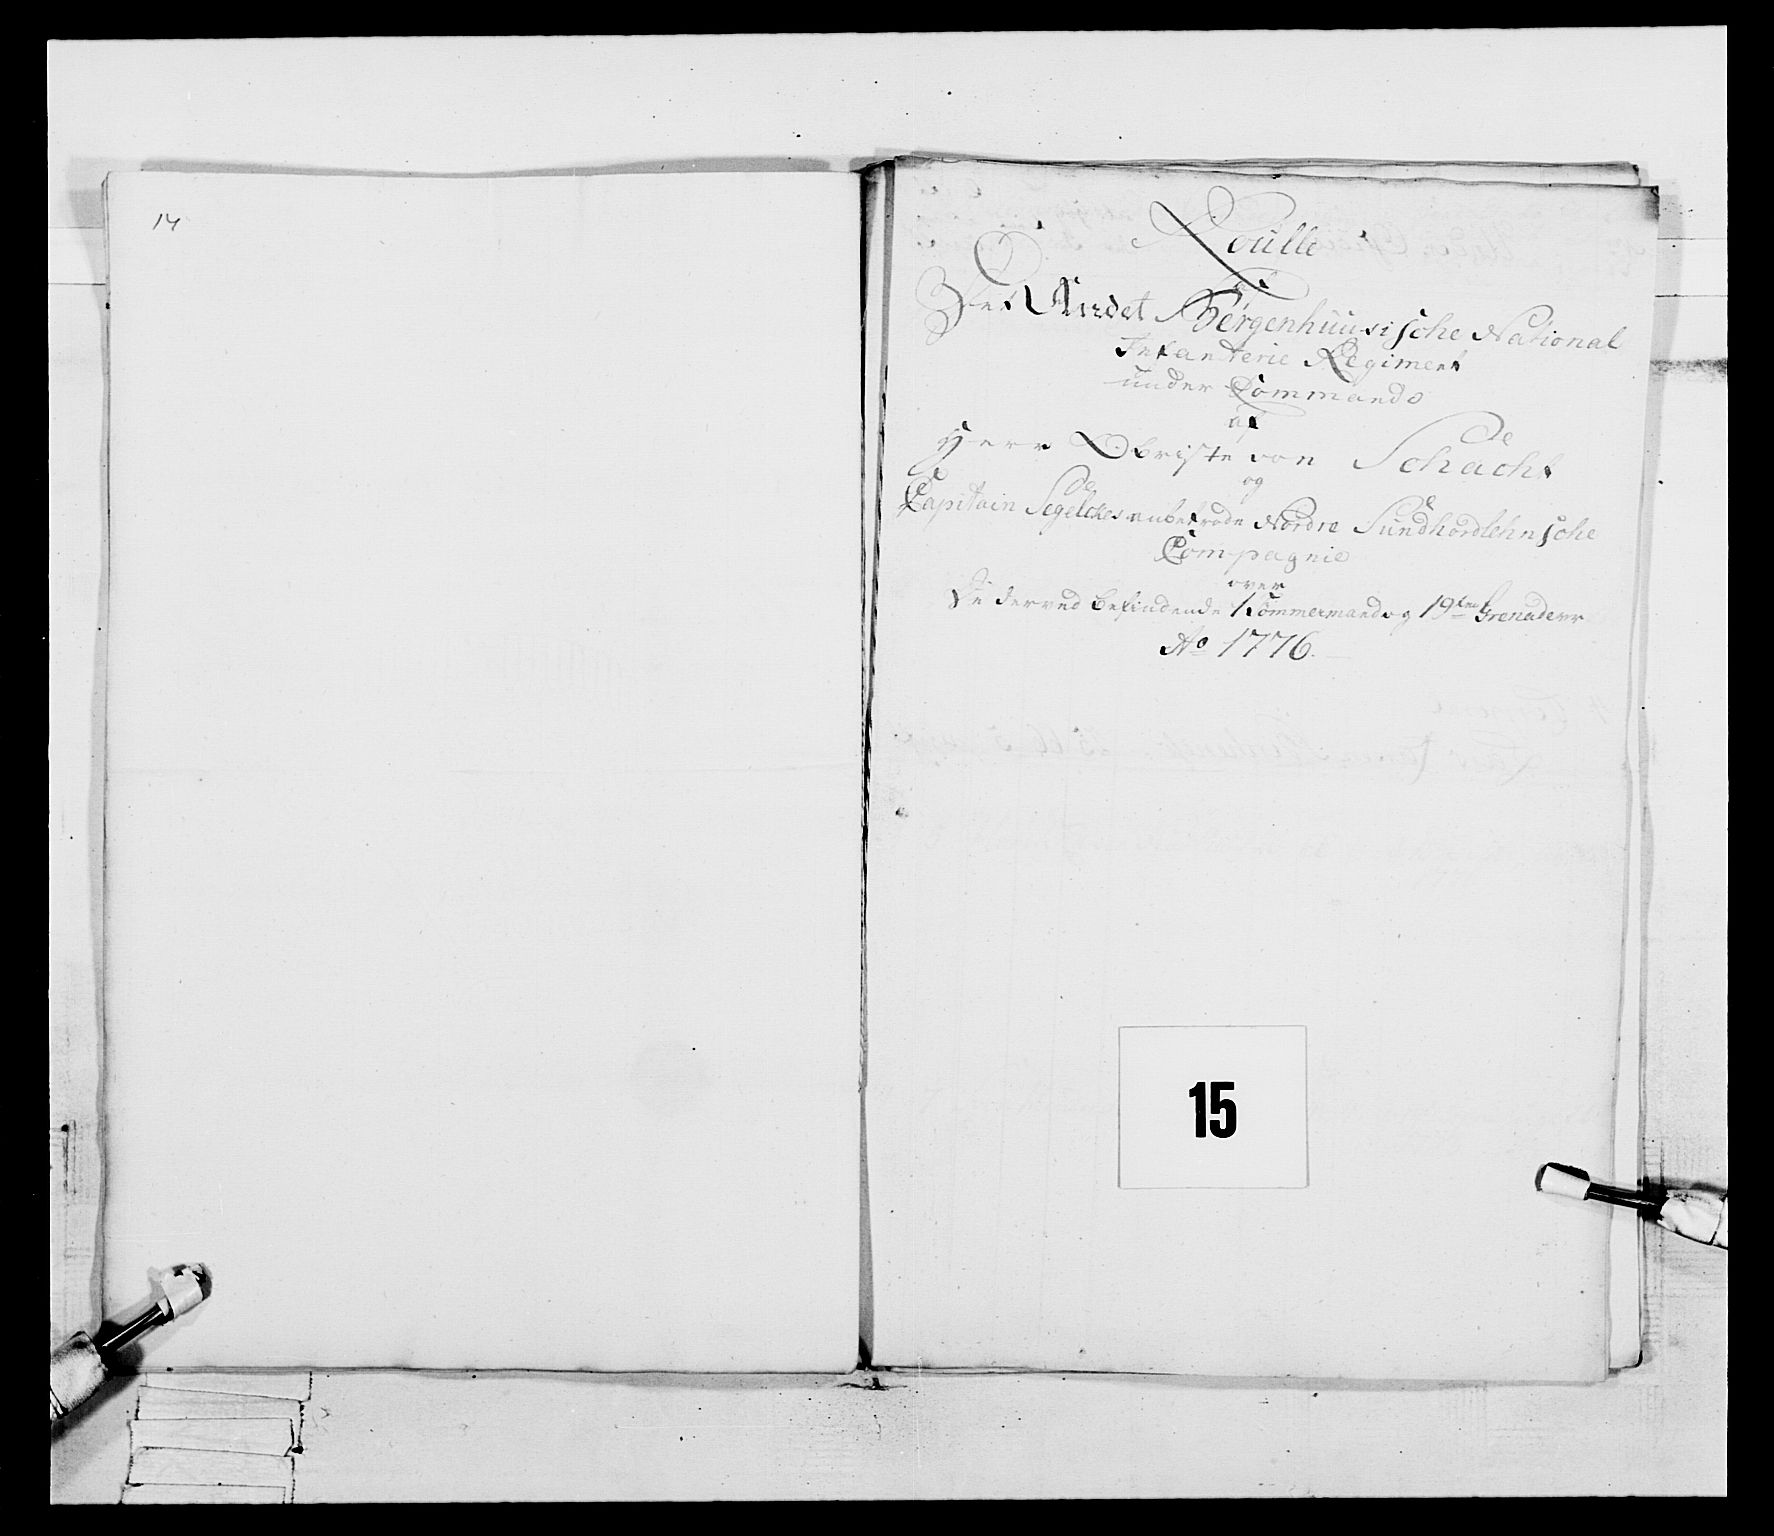 14
Roulle
af
Det Andet Bergenhuusische National
Infanterie Regiment
under Commando
af
Herr Obriste von Schacht
og
Capitain Segelckes anbetrode Nordre Sundhordlehnsche
Compagnie
over
De derved befindende Tømmermænd og 19ten Grenaderer
Ao 1776.
15